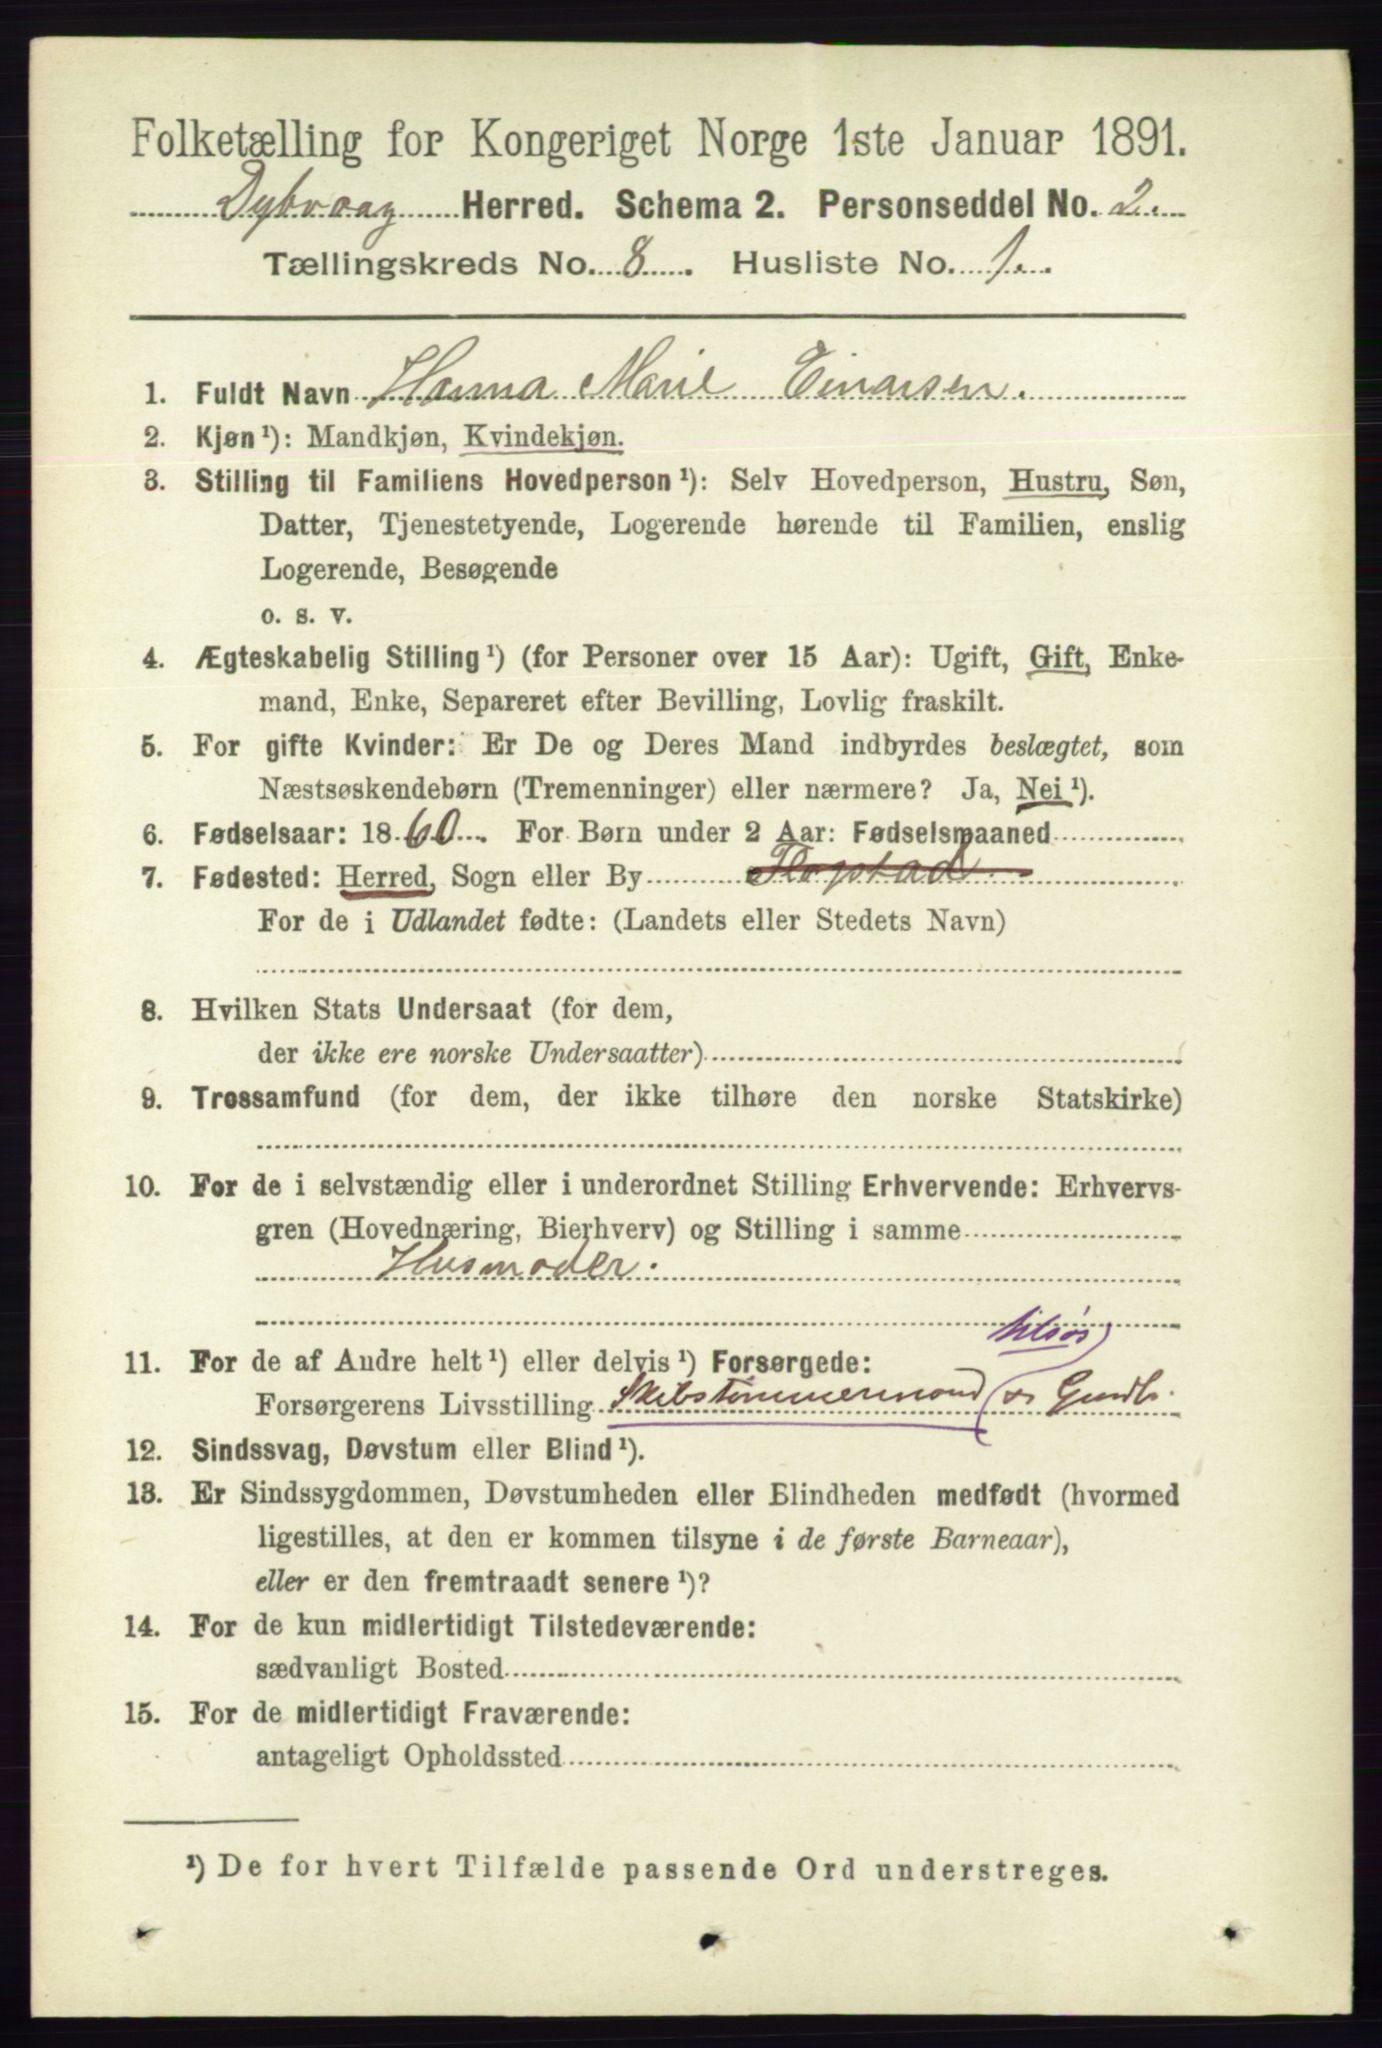 Folketælling for Kongeriget Norge 1ste Januar 1891.
Dybvaag Herred. Schema 2. Personseddel No. 2.
Tællingskreds No. 8. Husliste No. 1.
1. Fuldt Navn Hanna Marie Einarsen.
2. Kjøn¹): Mandkjøn, Kvindekjøn.
3. Stilling til Familiens Hovedperson¹): Selv Hovedperson, Hustru, Søn,
Datter, Tjenestetyende, Logerende hørende til Familien, enslig
Logerende, Besøgende
o. s. v.
4. Ægteskabelig Stilling¹) (for Personer over 15 Aar): Ugift, Gift, Enke-
mand, Enke, Separeret efter Bevilling, Lovlig fraskilt.
5. For gifte Kvinder: Er De og Deres Mand indbyrdes beslægtet, som
Næstsøskendebørn (Tremenninger) eller nærmere? Ja, Nei¹).
6. Fødselsaar: 1860. For Børn under 2 Aar: Fødselsmaaned
7. Fødested: Herred, Sogn eller By Flogstad
For de i Udlandet fødte: (Landets eller Stedets Navn)
8. Hvilken Stats Undersaat (for dem,
der ikke ere norske Undersaatter)
9. Trossamfund (for dem, der ikke tilhøre den norske Statskirke)
10. For de i selvstændig eller i underordnet Stilling Erhvervende: Erhvervs-
gren (Hovednæring, Bierhverv) og Stilling i samme
Husmoder.
tilsøs
11. For de af Andre helt¹) eller delvis¹) Forsørgede:
Forsørgerens Livsstilling Skibstømmermand
12. Sindssvag, Døvstum eller Blind¹).
13. Er Sindssygdommen, Døvstumheden eller Blindheden medfødt (hvormed
ligestilles, at den er kommen tilsyne i de første Barneaar),
eller er den fremtraadt senere¹)?
14. For de kun midlertidigt Tilstedeværende:
sædvanligt Bosted
15. For de midlertidigt Fraværende:
antageligt Opholdssted
¹) De for hvert Tilfælde passende Ord understreges.